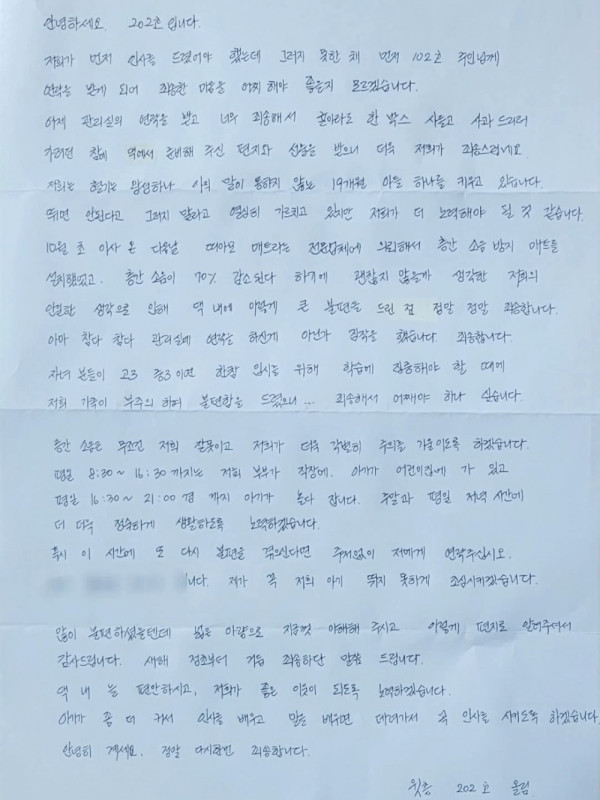 안녕하세요. 202호 입니다.
저희가 먼저 인사를 드렸어야 했는데 그러지 못한 채 먼저 102호 주인님께
연락을 받게 되어 죄송한 마음을 어찌 해야 좋을지 모르겠습니다.
어제 관리실의 연락을 받고 너무 죄송해서 한 박스 사들고 사과 드리러
가려던 참에 댁에서 준비해 주신 편지와 선물을 받으니 더욱 저희가 죄송스럽네요.
저희는 혈기는 왕성하나 아직 말이 통하지 않는 19개월 아들 하나를 키우고 있습니다.
뛰면 안된다고 그러지 말라고 열심히 가르치고 있지만 저희가 더 노력해야 될 것 같습니다.
10월 초 이사 온 다음날 따아모 매트라는 전문업체에 의뢰해서 층간 소음 방지 매트를
설치했었고. 층간 소음이 70% 감소된다 하기에 괜찮지 않을까 생각한 저희의
안일한 생각으로 인해 댁 내에 이렇게 큰 불편을 드린 점 정말 정말 죄송합니다.
아마 참다 참다 관리실에 연락을 하신게 아닌가 짐작을 했습니다. 죄송합니다.
자녀 분들이 고3 중3 이면 한창 입시를 위해 학습에 집중해야 할 때에
저희 가족이 부주의 하여 불편함을 드렸으니 ... 죄송해서 어째야 하나 싶습니다.
층간 소음은 무조건 저희 잘못이고 저희가 더욱 각별히 주의를 기울이도록 하겠습니다.
평일 8:30 ~ 16:30 까지는 저희 부부가 직장에. 아기가 어린이집에 가 있고
평일 16:30 ~ 21:00 경 까지 아기가 놀다 잡니다. 주말과 평일 저녁 시간에
더 더욱 정숙하게 생활하도록 노력하겠습니다.
혹시 이 시간에 또 다시 불편을 겪으신다면 주저없이 저에게 연락주십시오.
니다. 제가 꼭 저희 아기 뛰지 못하게 조심시키겠습니다.
많이 불편하셨을텐데 넓은 아량으로 지금껏 이해해 주시고 이렇게 편지로 알려주셔서
감사드립니다. 새해 정초부터 거듭 죄송하단 말씀 드립니다.
댁 내 늘 편안하시고, 저희가 좋은 이웃이 되도록 노력하겠습니다.
아기가 좀 더 커서 인사를 배우고 말을 배우면 데려가서 꼭 인사를 시키도록 하겠습니다
안녕히 계세요. 정말 다시한번 죄송합니다.
윗층 202호 올림